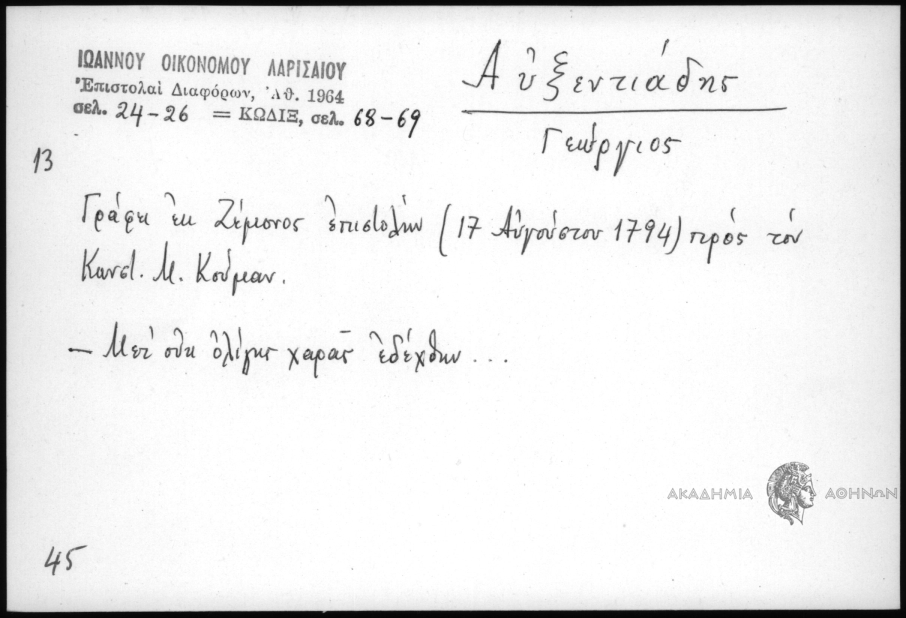 ΙΩΑΝΝΟΥ ΟΙΚΟΝΟΜΟΥ ΛΑΡΙΣΑΙΟΥ
Ἐπιστολαὶ Διαφόρων, Ἀθ. 1964
σελ. 24-26 = ΚΩΔΙΞ, σελ. 68-69
Αὐξεντιάδης
Γεώργιος
13
Γράφει ἐκ Ζέμονος ἐπιστολὴν (17 Αὐγούστου 1794) πρὸς τὸν
Κωνστ. Μ. Κούμαν.
— Μετ' οὐκ ὀλίγης χαρᾶς ἐδέχθην ...
ΑΚΑΔΗΜΙΑ ΑΘΗΝΩΝ
45